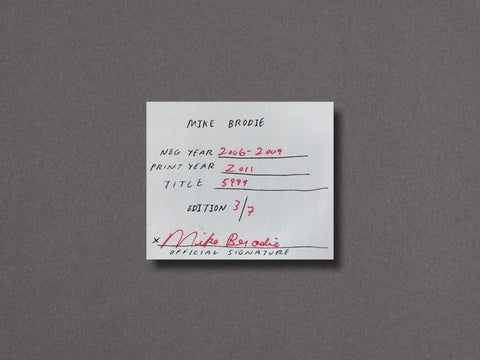 MIKE BRODIE
NEG YEAR 2006-2009
PRINT YEAR 2011
TITLE 5999
EDITION 3/7
x Mike Brodie
OFFICIAL SIGNATURE